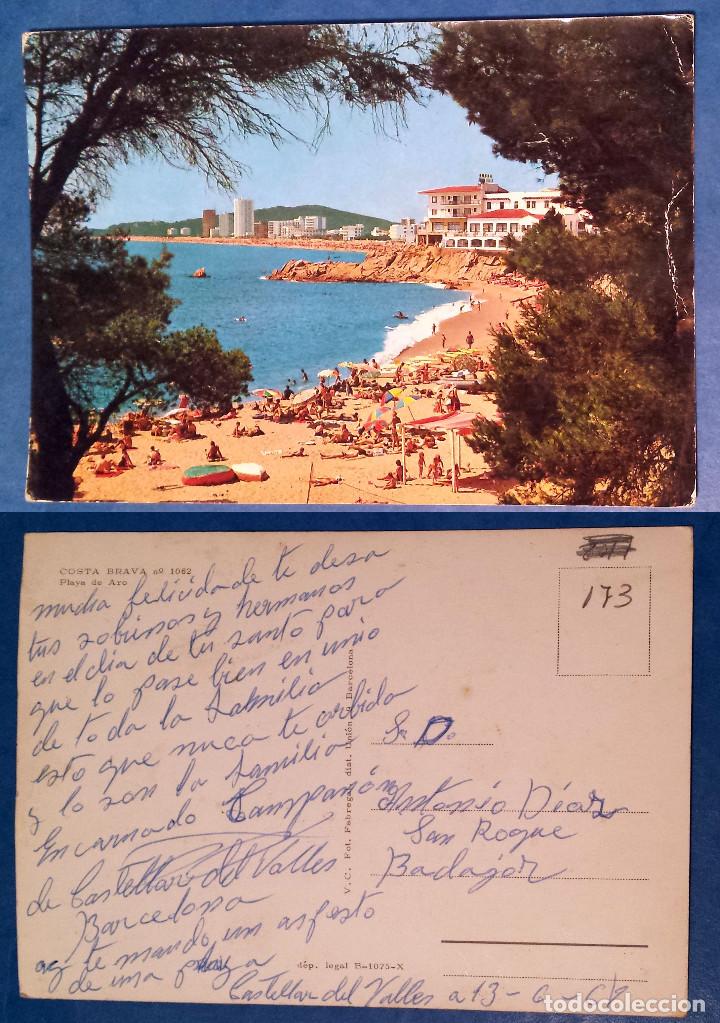 COSTA BRAVA nº 1062
Playa de Aro
mucha felicida de te desa
tus sobrinos y hermanos
en el dia de tu santo para
que lo pase bien en unio
de toda la familia
esto que nuca te orbida
y lo son la familia
Encarnado Campanón
de Castellar del Valles
Barcelona
te mando un aspesto
de una playa
Castellar del Valles a 13-6-68
173
V. C. Fot. Fabregat, dist. Unión, Barcelona
Sr. D.
Antonio Diaz
San Roque
Badajoz
dép. legal B-1075-X
todocoleccion